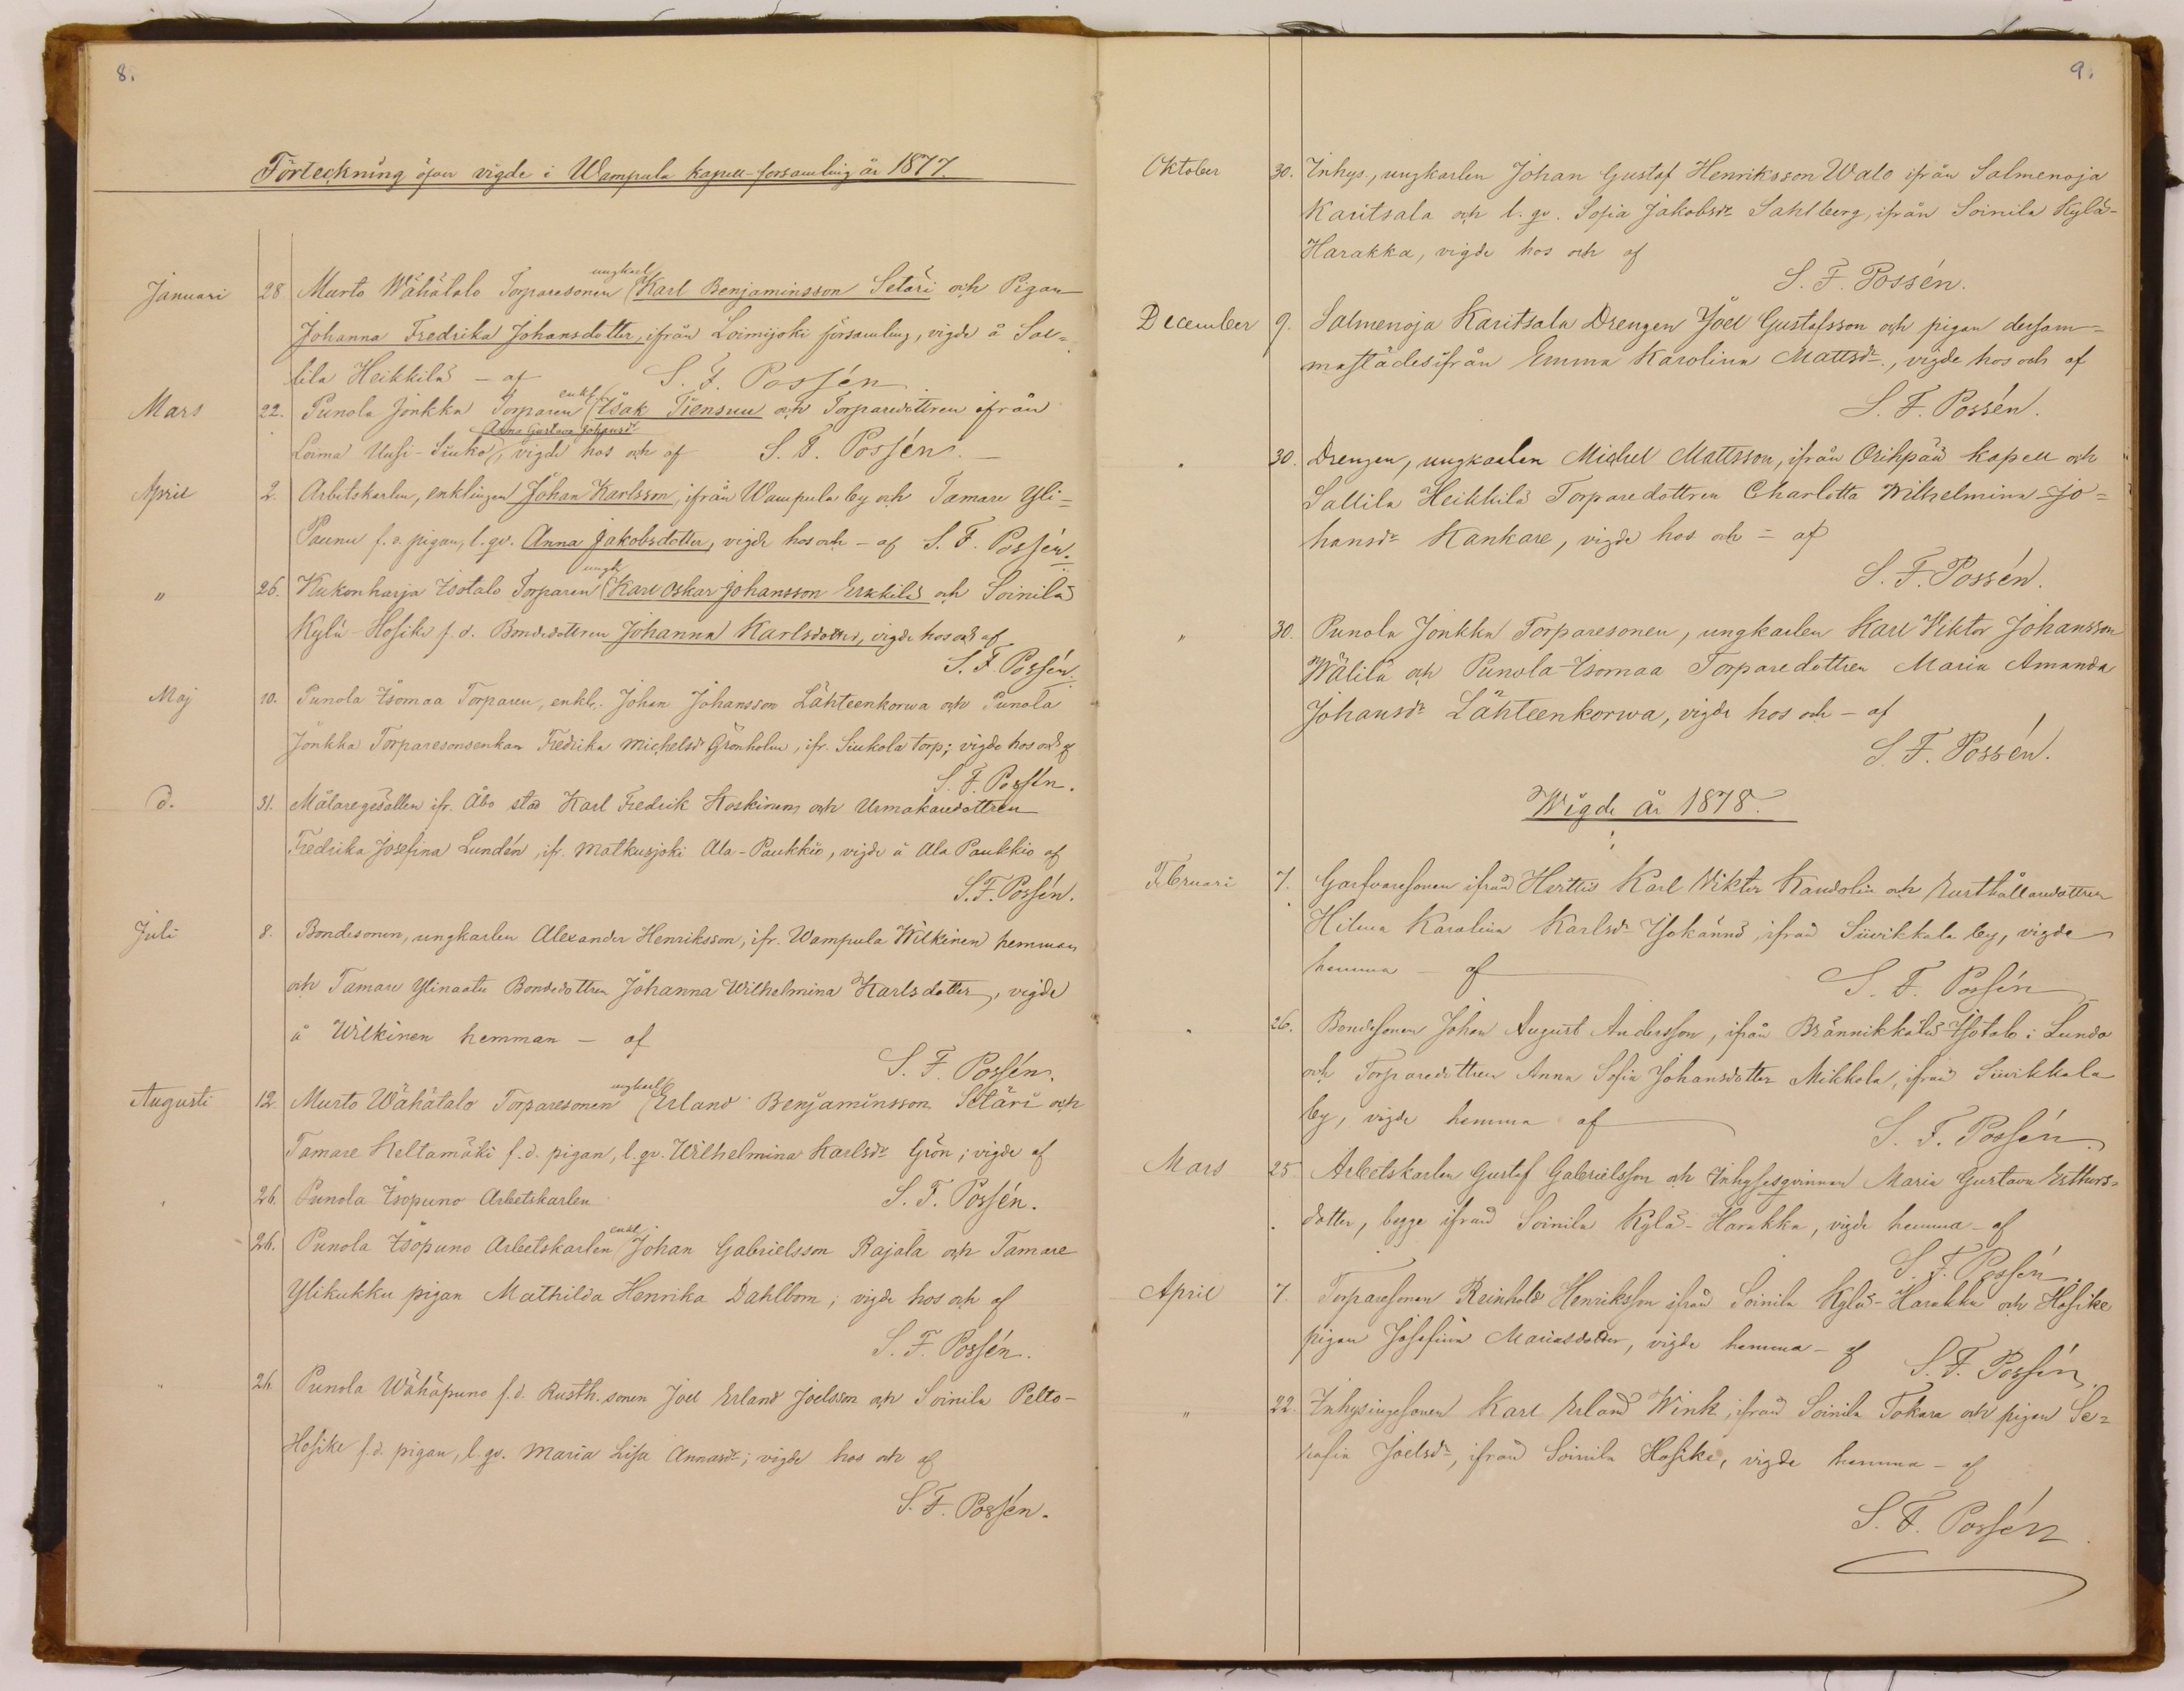 8.
Förteckning öfver vigde i Wampula kapell-församling år 1877.
Januari 28. Murto Wähätalo Torparesonen ungkarl Karl Benjaminsson Setäri och Pigan
Johanna Fredrika Johansdotter, ifrån Loimijoki församling, vigde å Sal=
lila Heikkilä – af S. F. Possén
Mars 22. Punola Jonkka Torparen enkl. Isak Tiensuu och Torparedottren ifrån
Loima Uusi-Siuko Anna Gustava Johansdr, vigde hos och af S. F. Possén. –
April 2. Arbetskarlen, enklingen Johan Karlsson, ifrån Wampula by och Tamare Yli=
Paunu f. d. pigan, l. qv. Anna Jakobsdotter, vigde hos och – af S. F. Possén.
" 26. Kukonharja Isotalo Torparen ungk. Karl Oskar Johansson Erkkilä och Soinila
Kylä-Hosike f. d. Bondedottren Johanna Karlsdotter, vigde hos och af
S. F. Possén.
Maj 10. Punola Isomaa Torparen, enkl. Johan Johansson Lähteenkorwa och Punola
Jonkka Torparesonsenkan Fredrika Michelsdr Grönholm, ifr. Siukola torp; vigde hos och af
S. F. Possén.
d. 31. Målaregesällen ifr. Åbo stad Karl Fredrik Koskinen och Urmakaredottren
Fredrika Josefina Lundén, ifr. Matkusjoki Ala-Paukkio, vigde å Ala Paukkio af
S. F. Possén.
Juli 8. Bondesonen, ungkarlen Alexander Henriksson, ifr. Wampula Wilkinen hemman
och Tamare Ylinaatu Bondedottren Johanna Wilhelmina Karlsdotter, vigde
å Wilkinen hemman – af
S. F. Possén.
Augusti 12. Murto Wähätalo Torparesonen ungkarl Erland Benjaminsson Setäri och
Tamare Keltamäki f. d. pigan, l. qv. Wilhelmina Karlsdr Grön; vigde af
" 26. Punola Isopuno Arbetskarlen S. F. Possén.
26. Punola Isopuno Arbetskarlen enkl. Johan Gabrielsson Rajala och Tamare
Ylikukku pigan Mathilda Henrika Dahlbom; vigde hos och af
S. F. Possén.
" 26 Punola Wähäpuno f. d. Rusth. sonen Joel Erland Joelsson och Soinila Pelto-
Hosike f. d. pigan, l. qv. Maria Lisa Annasdr; vigde hos och af
S. F. Possén.
9.
Oktober 30. Inhys., ungkarlen Johan Gustaf Henriksson Walo ifrån Salmenoja
Karitsala och l. qv. Sofia Jakobsdr Sahlberg, ifrån Soinila Kylä-
Harakka, vigde hos och af
S. F. Possén.
December 9. Salmenoja Karitsala Drengen Joel Gustafsson och pigan dersam=
mastädesifrån Emma Karolina Mattsdr., vigde hos och af
S. F. Possén.
" 30. Drengen, ungkarlen Michel Mattsson, ifrån Orihpää kapell och
Sallila Heikkilä Torparedottren Charlotta Wilhelmina Jo=
hansdr Kankare, vigde hos och = af
S. F. Possén.
" 30. Punola Jonkka Torparesonen, ungkarlen Karl Viktor Johansson
Wälilä och Punola-Isomaa Torparedottren Maria Amanda
Johansdr Lähteenkorwa, vigde hos och – af
S. F. Possén.
Wigde år 1878.
Februari 7. Garfvaresonen ifrån Herttis Karl Viktor Kandolin och Rusthållaredottren
Hilma Karolina Karlsdr Isokännö, ifrån Siivikkala by, vigde
hemma – af
S. F. Possén
" 26. Bondesonen Johan August Andersson, ifrån Brännikkälä Isotalo i Lundo
och Torparedottren Anna Sofia Johansdotter Mikkola, ifrån Siivikkala
by, vigde hemma af
S. F. Possén.
Mars 25 Arbetskarlen Gustaf Gabrielsson och Inhysesqvinnan Maria Gustava Esthers=
dotter, begge ifrån Soinila Kylä-Harakka, vigde hemma – af
S. F. Possén.
April 7. Torparesonen Reinhold Henriksson ifrån Soinila Kylä-Harakka och Hosike
pigan Josefina Mariasdotter, vigde hemma – af S. F. Possén.
" 22. Inhysingesonen Karl Erland Wink, ifrån Soinila Tokara och pigan Se=
rafia Joelsdr, ifrån Soinila Hosike, vigde hemma – af
S. F. Possén